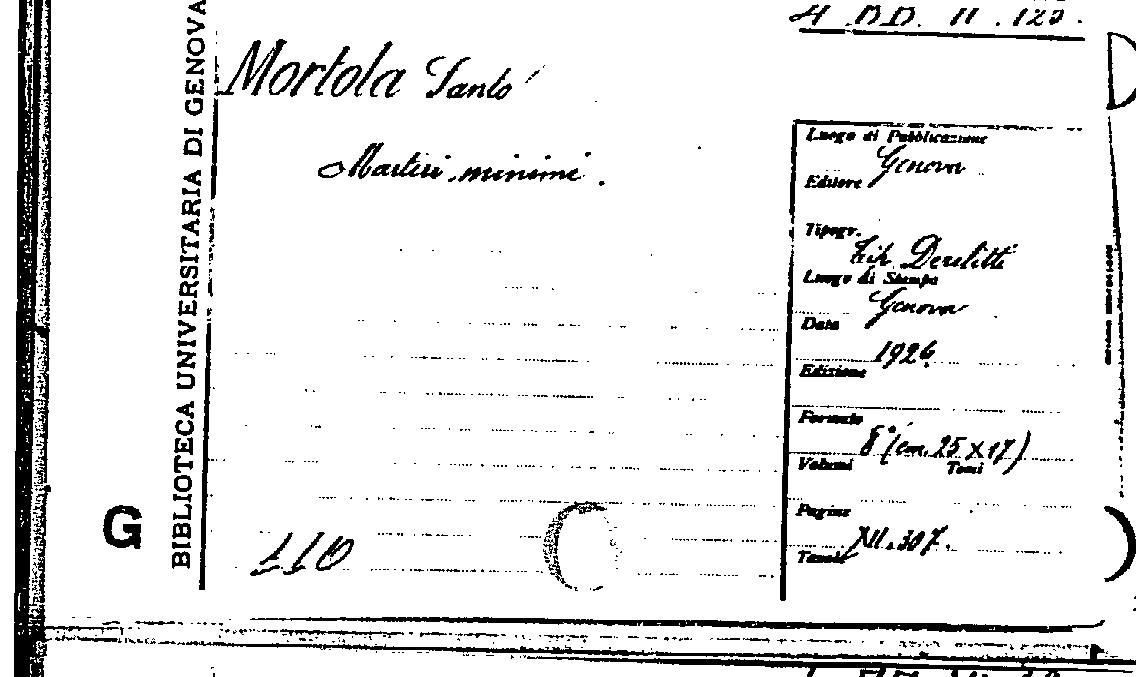 4 DD. II. 120.
BIBLIOTECA UNIVERSITARIA DI GENOVA
Mortola Santo
Martiri minimi.
Luogo di Pubblicazione
Genova
Editore
Tipogr.
Tip. Derelitti
Luogo di Stampa
Genova
Data
1926
Edizione
Formato
8° (cm. 25 x 17)
Volumi Tomi
Pagine
XII. 307.
Tavole
G
110